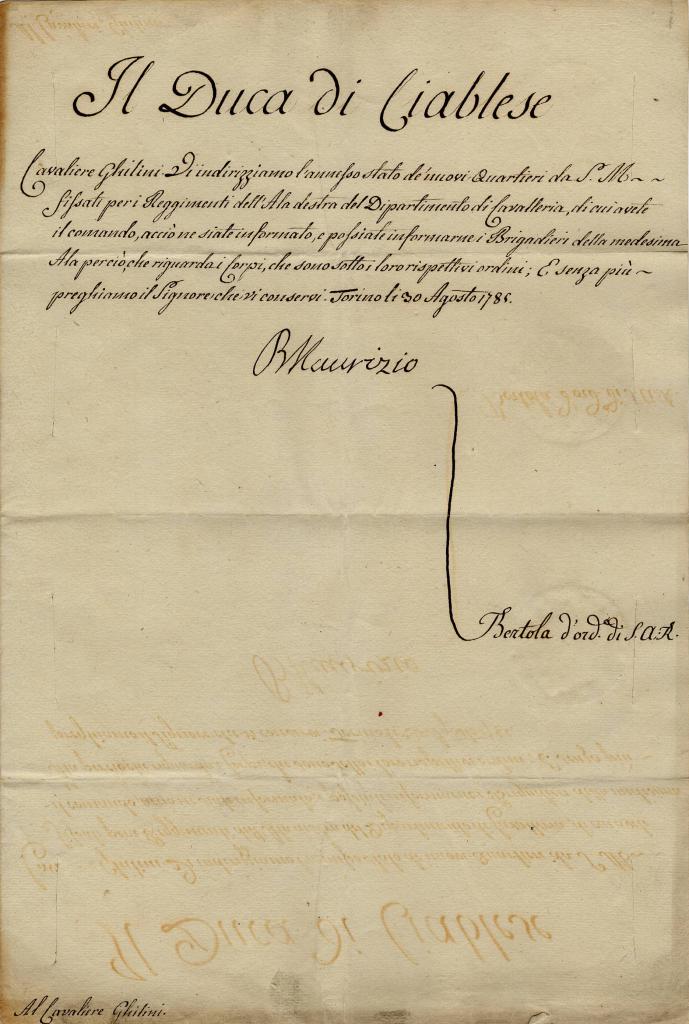 Il Duca di Ciablese
Cavaliere Ghilini. Vi indirizziamo l'annesso stato de' nuovi Quartieri da S. M~~
fissati per i Reggimenti dell'Ala destra del Dipartimento di Cavalleria, di cui avete
il comando, acciò ne siate informato, e possiate informarne i Brigadieri della medesima
Ala perciò, che riguarda i Corpi, che sono sotto i loro rispettivi ordini; E senza più~
preghiamo il Signore che vi conservi. Torino li 30 Agosto 178
BMaurizio
Bertola d'ord.e di S.A.R.
Al Cavaliere Ghilini.